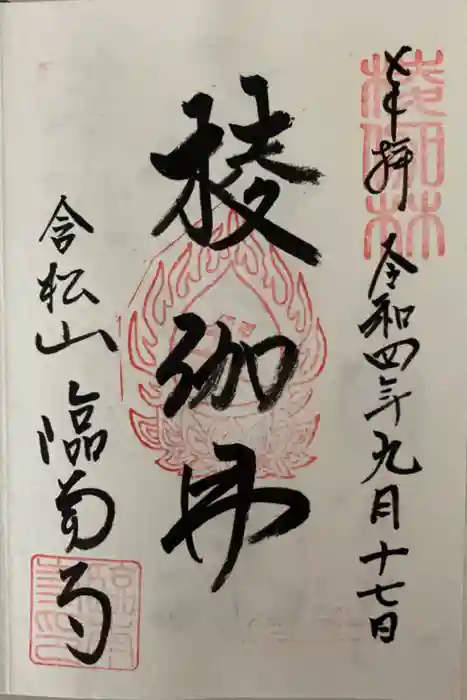 奉拝 令和四年九月十七日
棱伽林
含松山 臨南寺